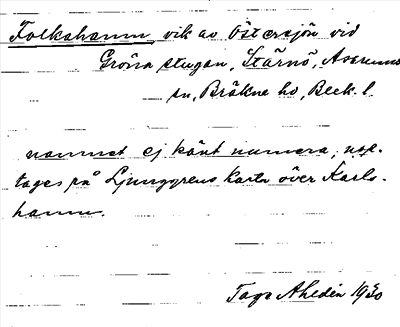 Folkahamn vik av Östersjön vid
Gröna stugan, Stärnö, Asarums
sn, Bräkne hd, Bleck. l.
namnet ej känt numera, upp-
tages på Ljunggrens karta över Karls-
hamn.
Tage Ahldén 1930